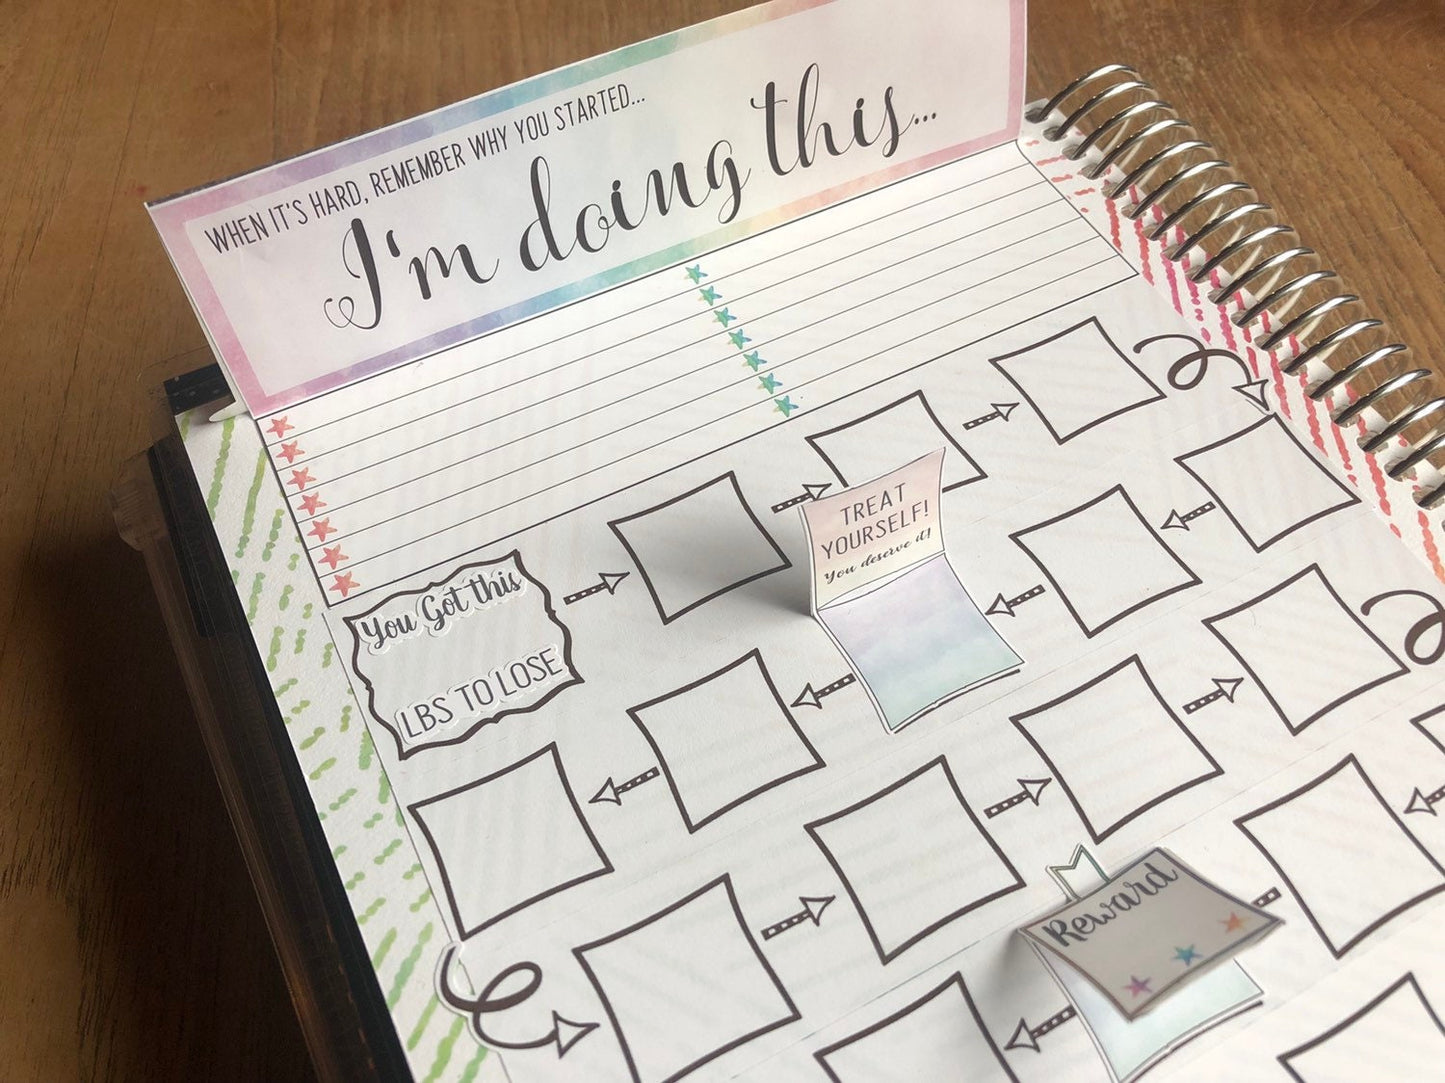 WHEN IT'S HARD, REMEMBER WHY YOU STARTED...
I'm doing this...
TREAT
YOURSELF!
You deserve it!
You Got this
LBS TO LOSE
Reward